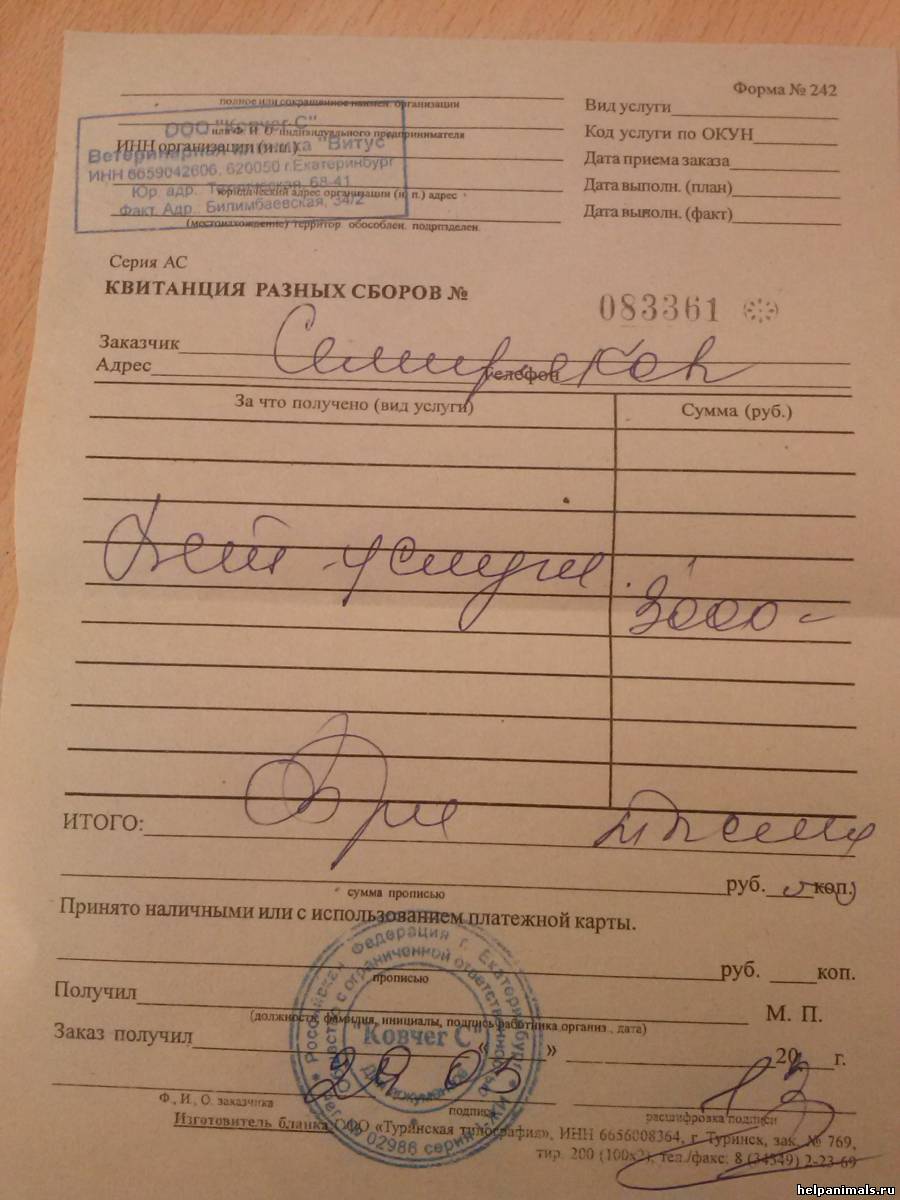 Форма № 242
полное или сокращенное наимен. организации
Вид услуги
ООО "Ковчег С"
или Ф. И. О. индивидуального предпринимателя
Код услуги по ОКУН
ИНН организации (и.п.)
Ветеринарная клиника "Витус"
Дата приема заказа
ИНН 6659042606, 620050 г.Екатеринбург
Юр. адр. 68-41
юридический адрес организации (и. п.) адрес
Дата выполн. (план)
Факт. Адр. Билимбаевская, 34/2
Дата выполн. (факт)
(местонахождение) территор. обособлен. подразделен.
Серия АС
КВИТАНЦИЯ РАЗНЫХ СБОРОВ № 083361
Заказчик
Адрес Телефон
За что получено (вид услуги) Сумма (руб.)
Вет услуги 3000-
ИТОГО: Три тысячи
руб. коп.
сумма прописью
Принято наличными или с использованием платежной карты.
руб. коп.
прописью
Получил М. П.
(должность, фамилия, инициалы, подпись работника организ., дата)
Заказ получил « » 20 г.
29 03 13
Ф., И., О. заказчика подпись расшифровка подписи
Российская Федерация г. Екатеринбург
Общество с ограниченной ответственностью
"Ковчег С"
Для документов
02986 серия
Изготовитель бланка ООО «Туринская типография», ИНН 6656008364, г. Туринск, зак. № 769,
тир. 200 (100х2), тел./факс: 8 (34349) 2-23-69
helpanimals.ru